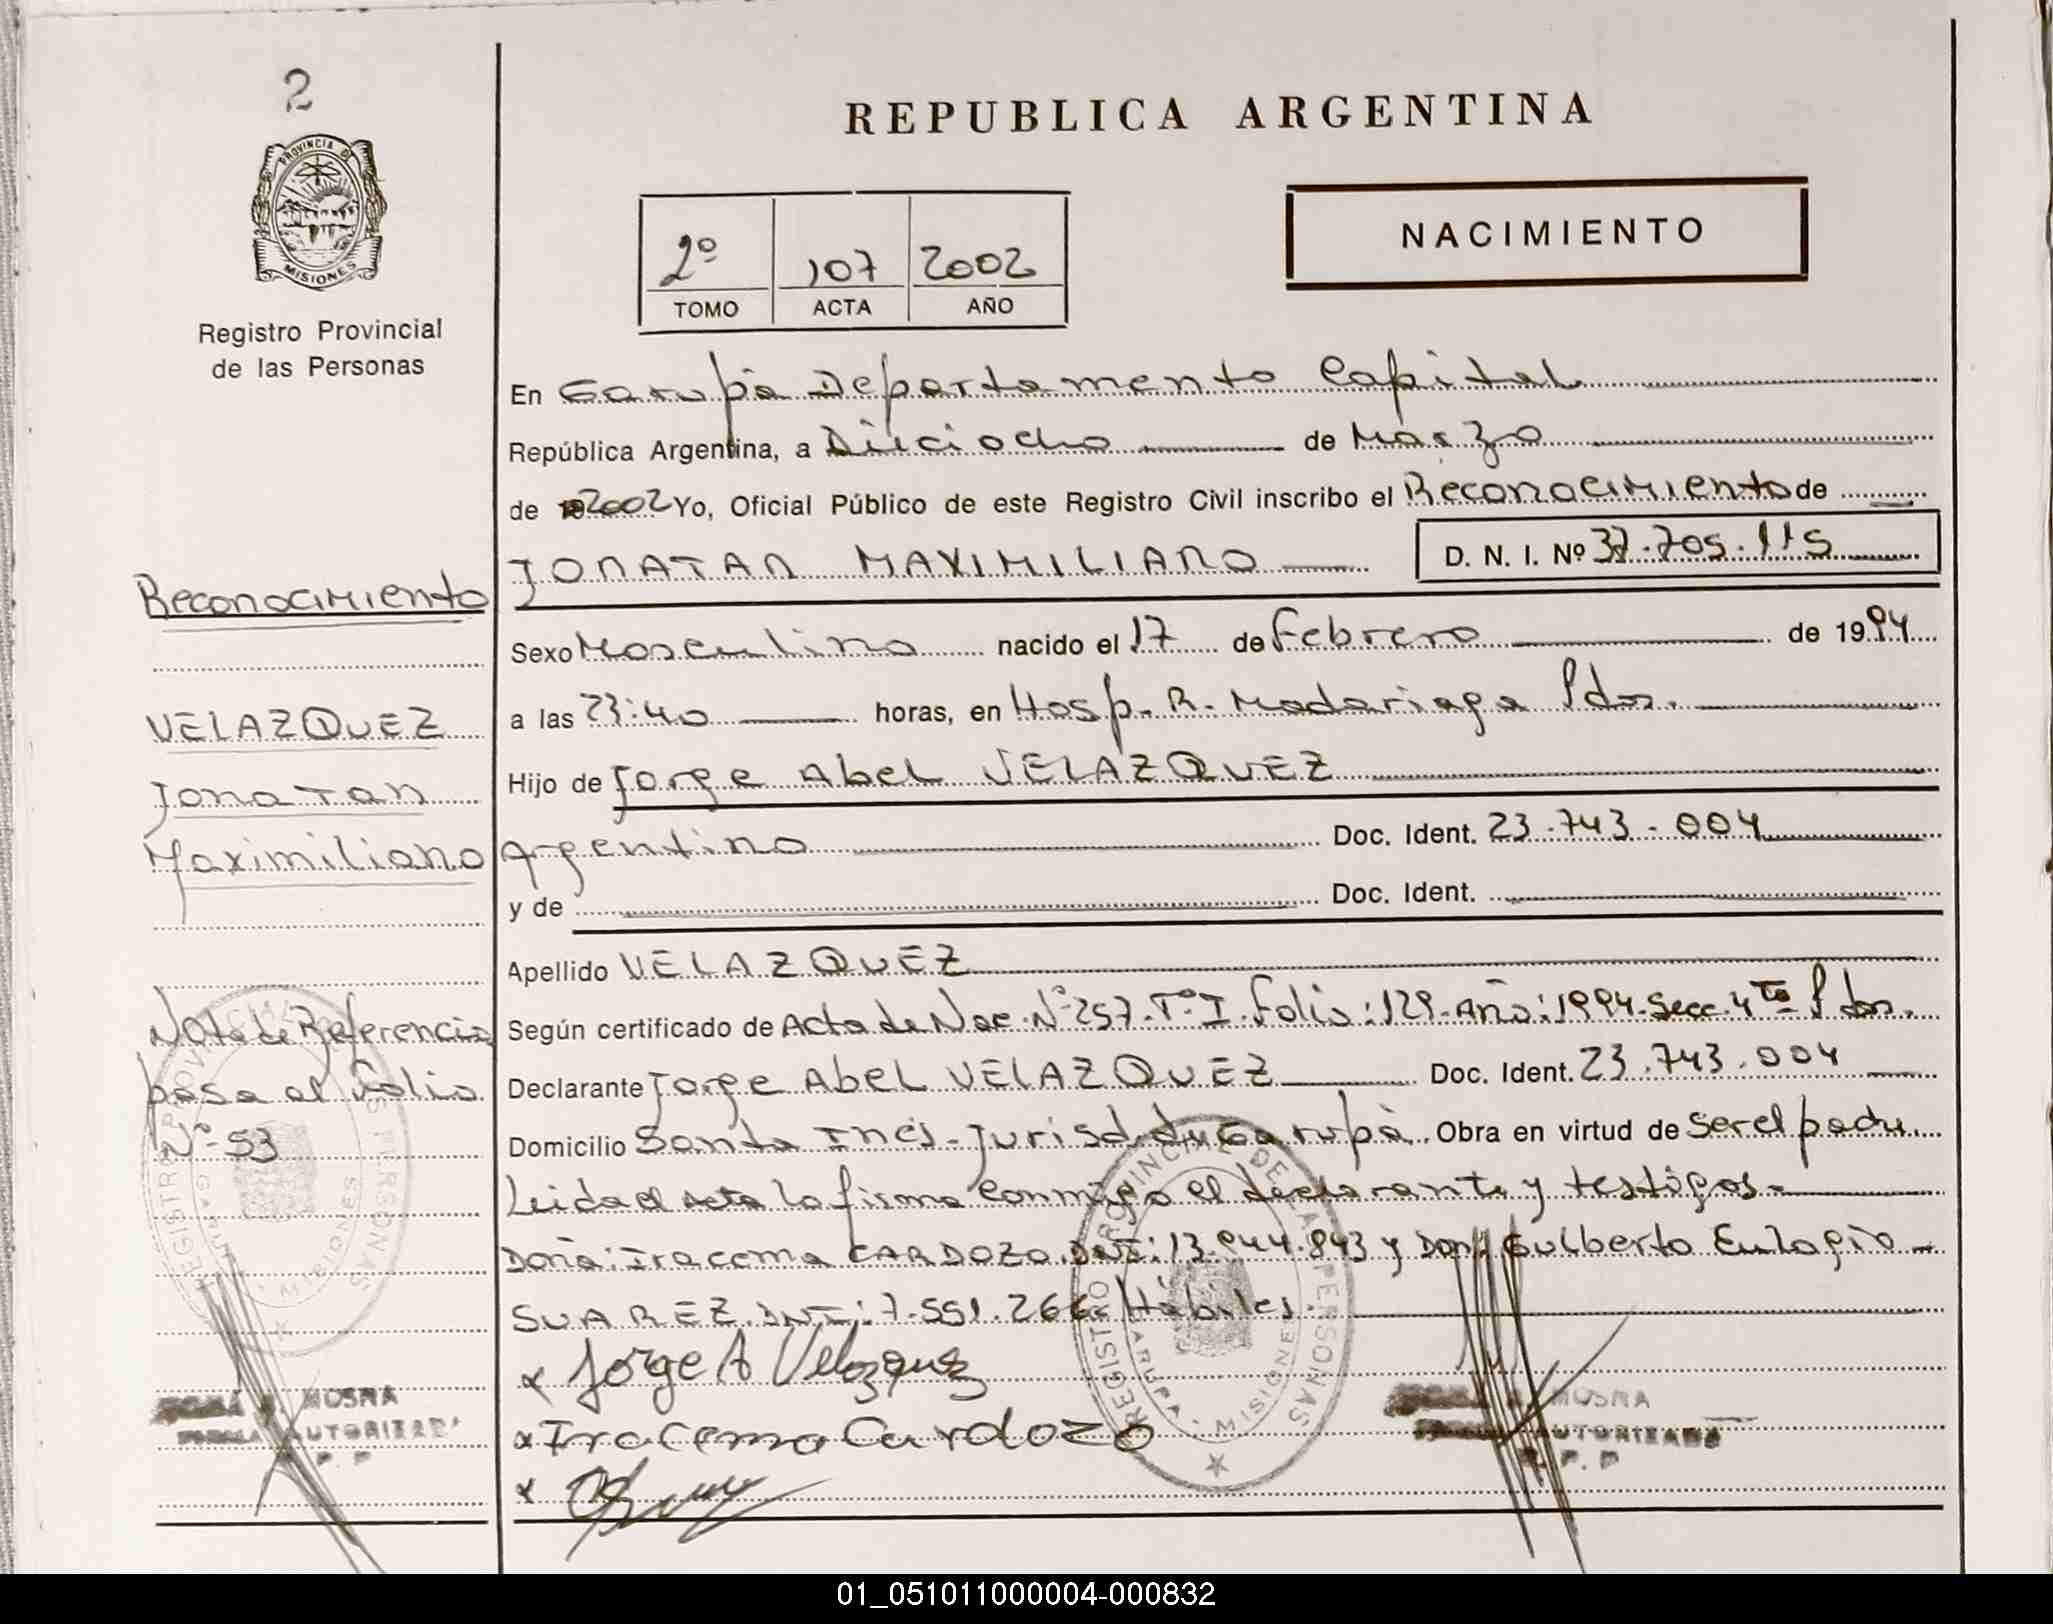 2
REPUBLICA ARGENTINA
PROVINCIA DE
MISIONES
Registro Provincial
de las Personas
2º 107 2002
TOMO ACTA AÑO
NACIMIENTO
En Garupá Departamento Capital
República Argentina, a Dieciocho de Marzo
de 2002 Yo, Oficial Público de este Registro Civil inscribo el Reconocimiento de
JONATAN MAXIMILIANO D. N. I. Nº 37.705.115
Sexo Masculino nacido el 17 de Febrero de 1994
a las 23:40 horas, en Hosp. R. Madariaga Pdas.
Hijo de Jorge Abel VELAZQUEZ
Argentino Doc. Ident. 23.743.004
y de Doc. Ident.
Apellido VELAZQUEZ
Según certificado de Acta de Nac. Nº 257. Tº I. Folio: 129. Año: 1994. Secc. 4ta Pdas.
Declarante Jorge Abel VELAZQUEZ Doc. Ident. 23.743.004
Domicilio Santa Inés. Jurisd. de Garupá. Obra en virtud de ser el padre
Leida el acta la firma conmigo el declarante y testigos.
Doña: Iracema CARDOZO. DNI: 13.944.843 y Don: Gulberto Eulogio
SUAREZ. DNI: 7.551.266. Hábiles.
x Jorge A Velazquez
x Iracema Cardozo
x
Reconocimiento
VELAZQUEZ
Jonatan
Maximiliano
Nota de Referencia
pasa al folio
Nº 53
REGISTRO PROVINCIAL DE LAS PERSONAS
GARUPA - MISIONES
MOSRA
AUTORIZADA
R. P. P
01_051011000004-000832